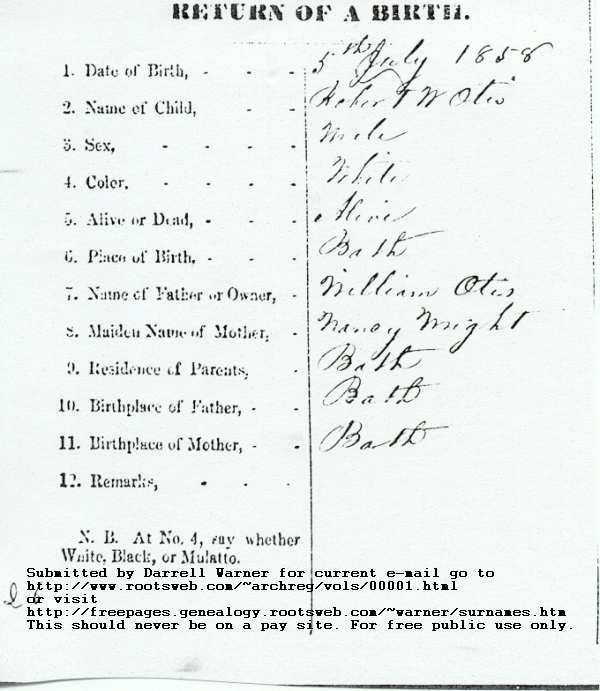 RETURN OF A BIRTH.
1. Date of Birth, - - - 5th July 1858
2. Name of Child, - - Robert W Otis
3. Sex, - - - - Male
4. Color, - - - - White
5. Alive or Dead, - - - Alive
6. Place of Birth, - - - Bath
7. Name of Father or Owner, - William Otis
8. Maiden Name of Mother, - Nancy Wright
9. Residence of Parents, - Bath
10. Birthplace of Father, - - Bath
11. Birthplace of Mother, - - Bath
12. Remarks, - - -
N. B. At No. 4, say whether
White, Black, or Mulatto.
Submitted by Darrell Warner for current e-mail go to
http://www.rootsweb.com/~archreg/vols/00001.html
or visit
http://freepages.genealogy.rootsweb.com/~warner/surnames.htm
This should never be on a pay site. For free public use only.